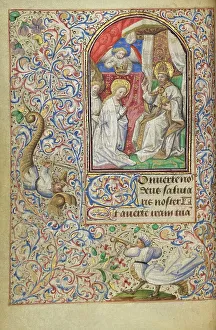 Onuerte no
Deus saluta
ris noster
t auerte iram tua